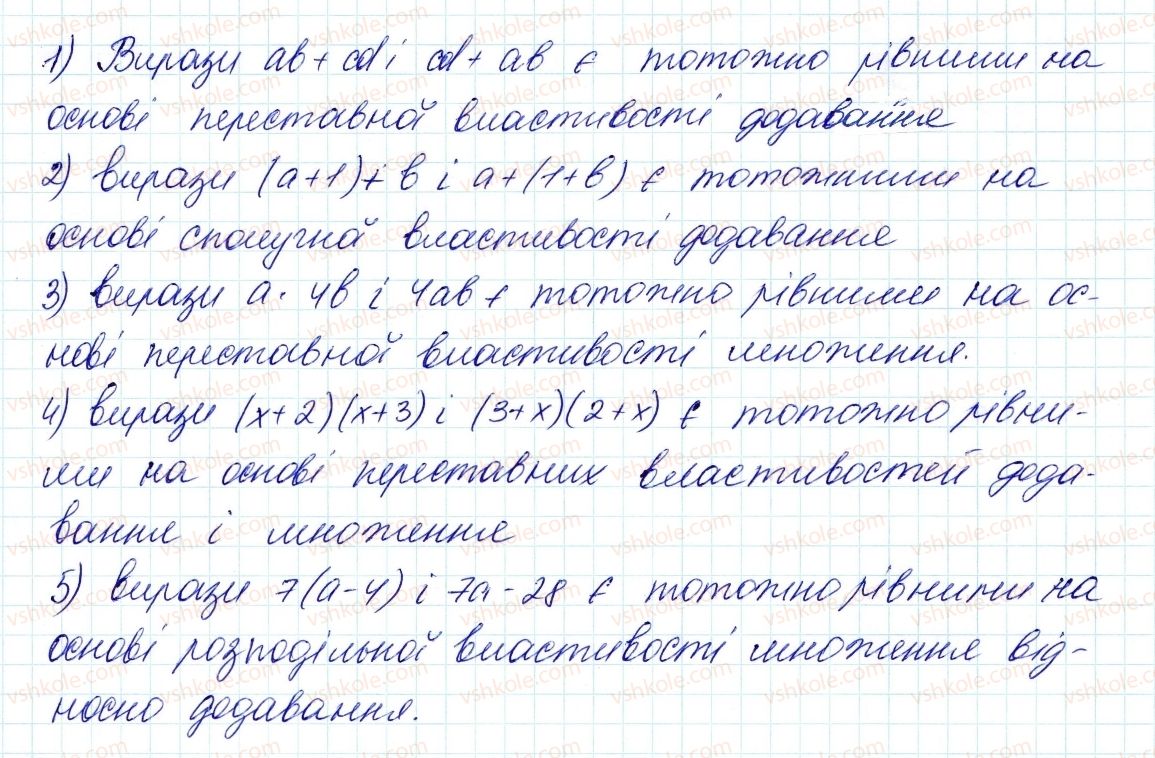 1) Вирази ab + cd i cd + ab є тотожно рівними на
основі переставної властивості додавання
2) вирази (a+1)+b i a+(1+b) є тотожними на
основі сполучної властивості додавання
3) вирази a · 4b i 4ab є тотожно рівними на ос-
нові переставної властивості множення.
4) вирази (x+2)(x+3) i (3+x)(2+x) є тотожно рівни-
ми на основі переставних властивостей дода-
вання і множення
5) вирази 7(a-4) i 7a-28 є тотожно рівними на
основі розподільної властивості множення від-
носно додавання.